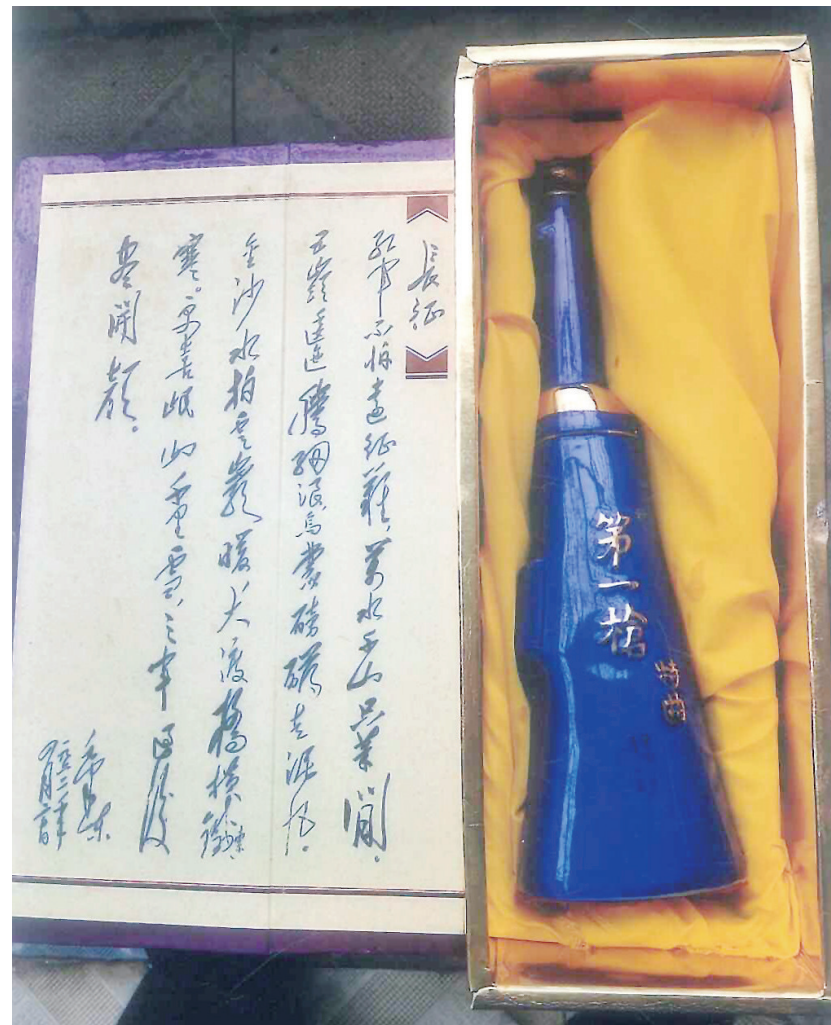 長征
红军不怕遠征難，萬水千山只等閒。
五嶺逶迤騰細浪，烏蒙磅礴走泥丸。
金沙水拍雲崖暖，大渡橋横鐵索
寒。更喜岷山千里雪，三军過後
盡開顔。
毛泽东
第一槍